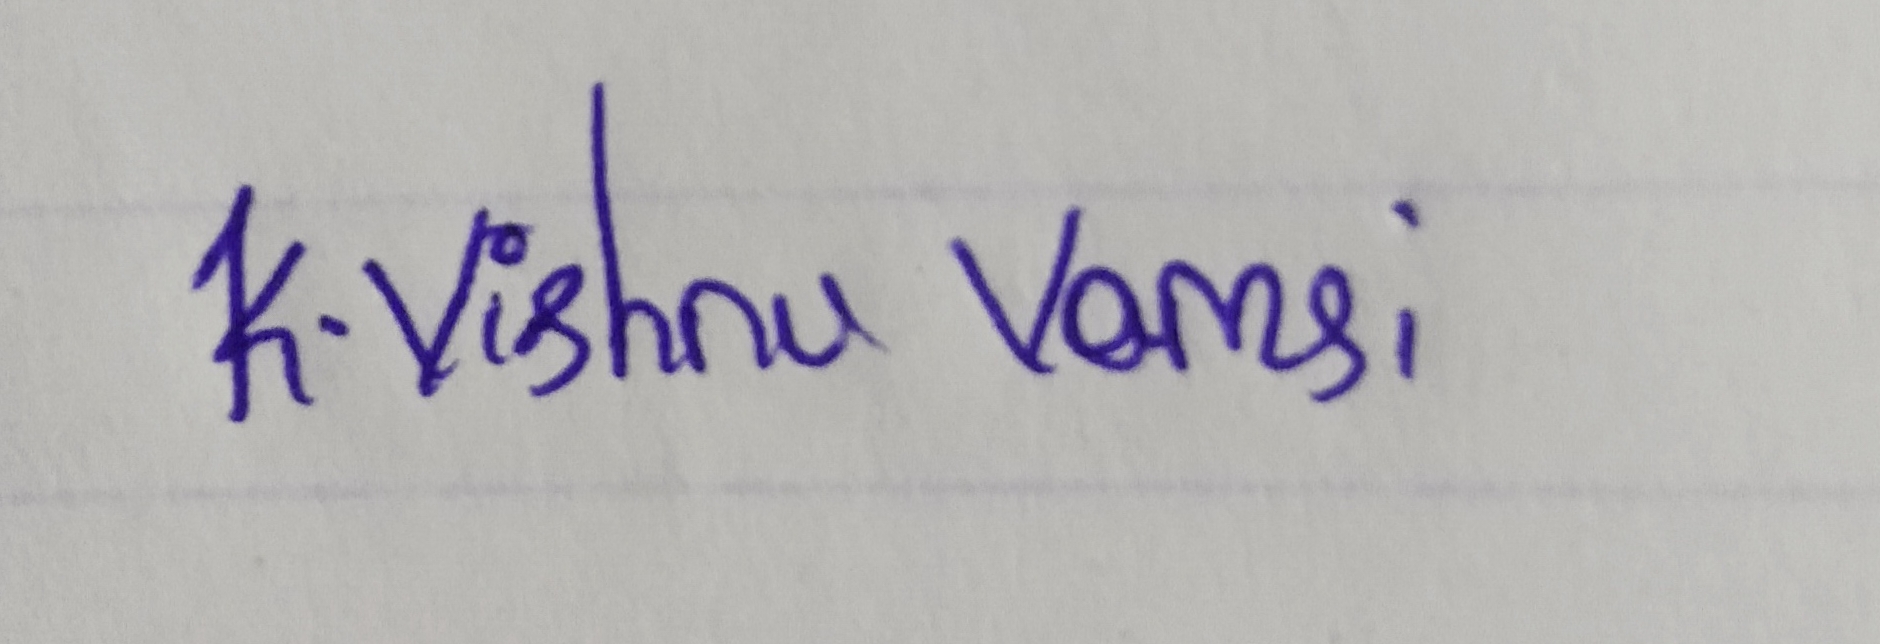 K. Vishnu Vamsi